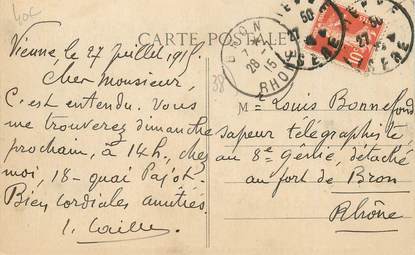 40c
CARTE POSTALE
Vienne, le 27 juillet 1915
Cher Monsieur,
C'est entendu. Vous
me trouverez dimanche
prochain, à 14h, chez
moi, 18 - quai Pajot.
Bien cordiales amitiés.
LYON
28 15
RHONE
ISERE
38
M. Louis Bonnefond
sapeur télégraphiste
au 8e Génie, détaché
au fort de Bron
Rhône